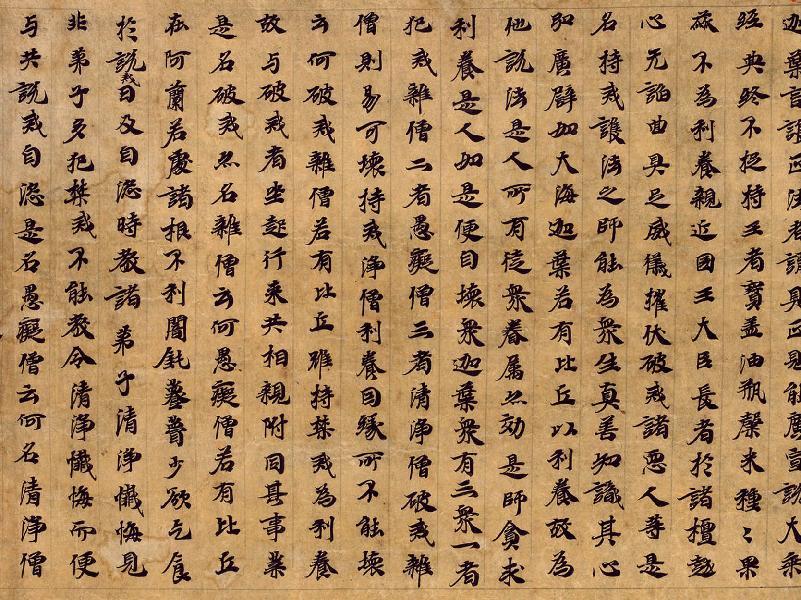 迦葉言護正法者謂具正見能廣宣説大乘
經典終不捉持王者寳盖油瓶穀米種〻果
蓏不為利養親近國王大臣長者於諸檀越
心无諂曲具足威儀摧伏破戒諸惡人等是
名持戒護法之師能為衆生真善知識其心
弘廣譬如大海迦葉若有比丘以利養故為
他説法是人所有徒衆眷属亦効是師貪求
利養是人如是便自壊衆迦葉衆有三衆一者
犯戒雜僧二者愚癡僧三者清淨僧破戒雜
僧則易可壊持戒淨僧利養因緣所不能壊
云何破戒雜僧若有比丘雖持禁戒為利養
故与破戒者坐起行来共相親附同其事業
是名破戒亦名雜僧云何愚癡僧若有比丘
在阿蘭若處諸根不利闇鈍瞢少欲乞食
於説戒日及自恣時教諸弟子清淨懺悔見
非弟子多犯禁戒不能教令清淨懺悔而便
与共説戒自恣是名愚癡僧云何名清淨僧